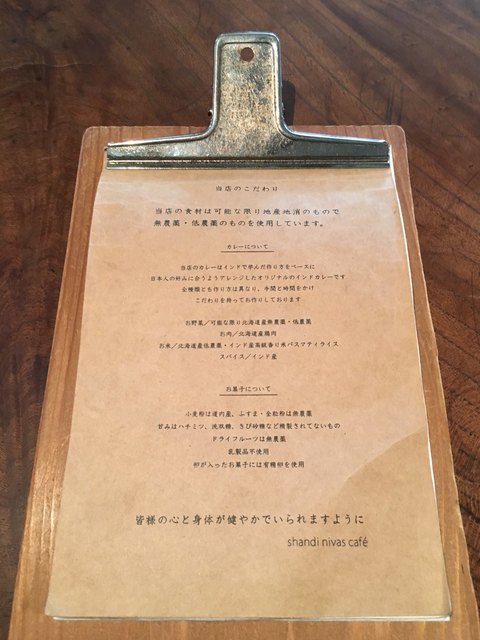 当店のこだわり
当店の食材は可能な限り地産地消のもので
無農薬・低農薬のものを使用しています。
カレーについて
当店のカレーはインドで学んだ作り方をベースに
日本人の好みに合うようアレンジしたオリジナルのインドカレーです
全種類とも作り方は異なり、手間と時間をかけ
こだわりを持ってお作りしております
お野菜／可能な限り北海道産無農薬・低農薬
お肉／北海道産鶏肉
お米／北海道産低農薬・インド産高級香り米バスマティライス
スパイス／インド産
お菓子について
小麦粉は道内産、ふすま・全粒粉は無農薬
甘みはハチミツ、洗双糖、きび砂糖など精製されてないもの
ドライフルーツは無農薬
乳製品不使用
卵が入ったお菓子には有精卵を使用
皆様の心と身体が健やかでいられますように
shandi nivas café